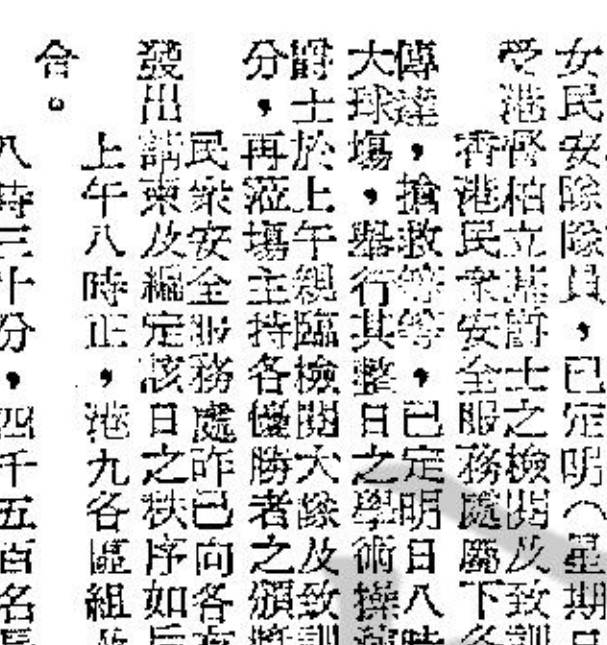 女民安隊隊員，已定明（星期日
受港督柏立基爵士之檢閱及致訓
香港民衆安全服務處屬下各
傳達，搶救等等，已定明日八時
大球場，舉行其整日之學術操演
爵士於上午親臨檢閱大隊及致訓
分，再蒞場主持各優勝者之頒獎
民衆安全服務處昨已向各有
發出請柬及編定該日之秩序如后
上午八時正，港九各區組及
合。
八時三十分，四千五百名長